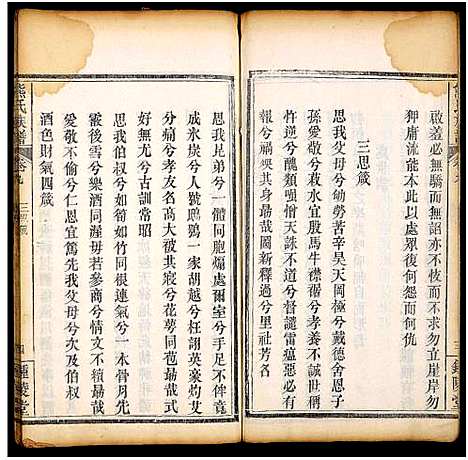 啟羞必無驕而無諂不忮而不求勿立崖岸勿
狎庸流能本此以處眾後何怨而何仇
三思箴
思我父母兮劬勞著辛昊天罔極兮戴德舍恩子
孫愛敬兮菽水宜殷馬牛襟裾兮孝養不誠世間
忤逆兮憎惱天誅不道兮督譴雷瘟惡必有
報兮兮哉圖新釋過兮里社芳名
思我兄弟兮一體同胞煽處爾室兮手足不俾竟
成氷炭兮人號鴟鴞一家胡越兮枉詡英豪灼艾
分痛兮孝友名高大被其寢兮花萼同苞勗哉式
好無尤兮古訓常昭
思我伯叔兮如筍如竹同根連氣兮一本骨肉先
靈後靈兮樂酒同湑毋若參商兮情文不明大
愛敬不偷兮仁恩宜篤先我父母兮次及伯叔
酒色財氣四箴
熊氏族譜
卷九
三思箴
四
鍾陵堂
三
鍾陵堂